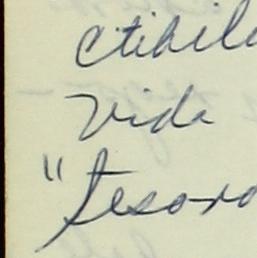 ctibil
Vida
"tesoro